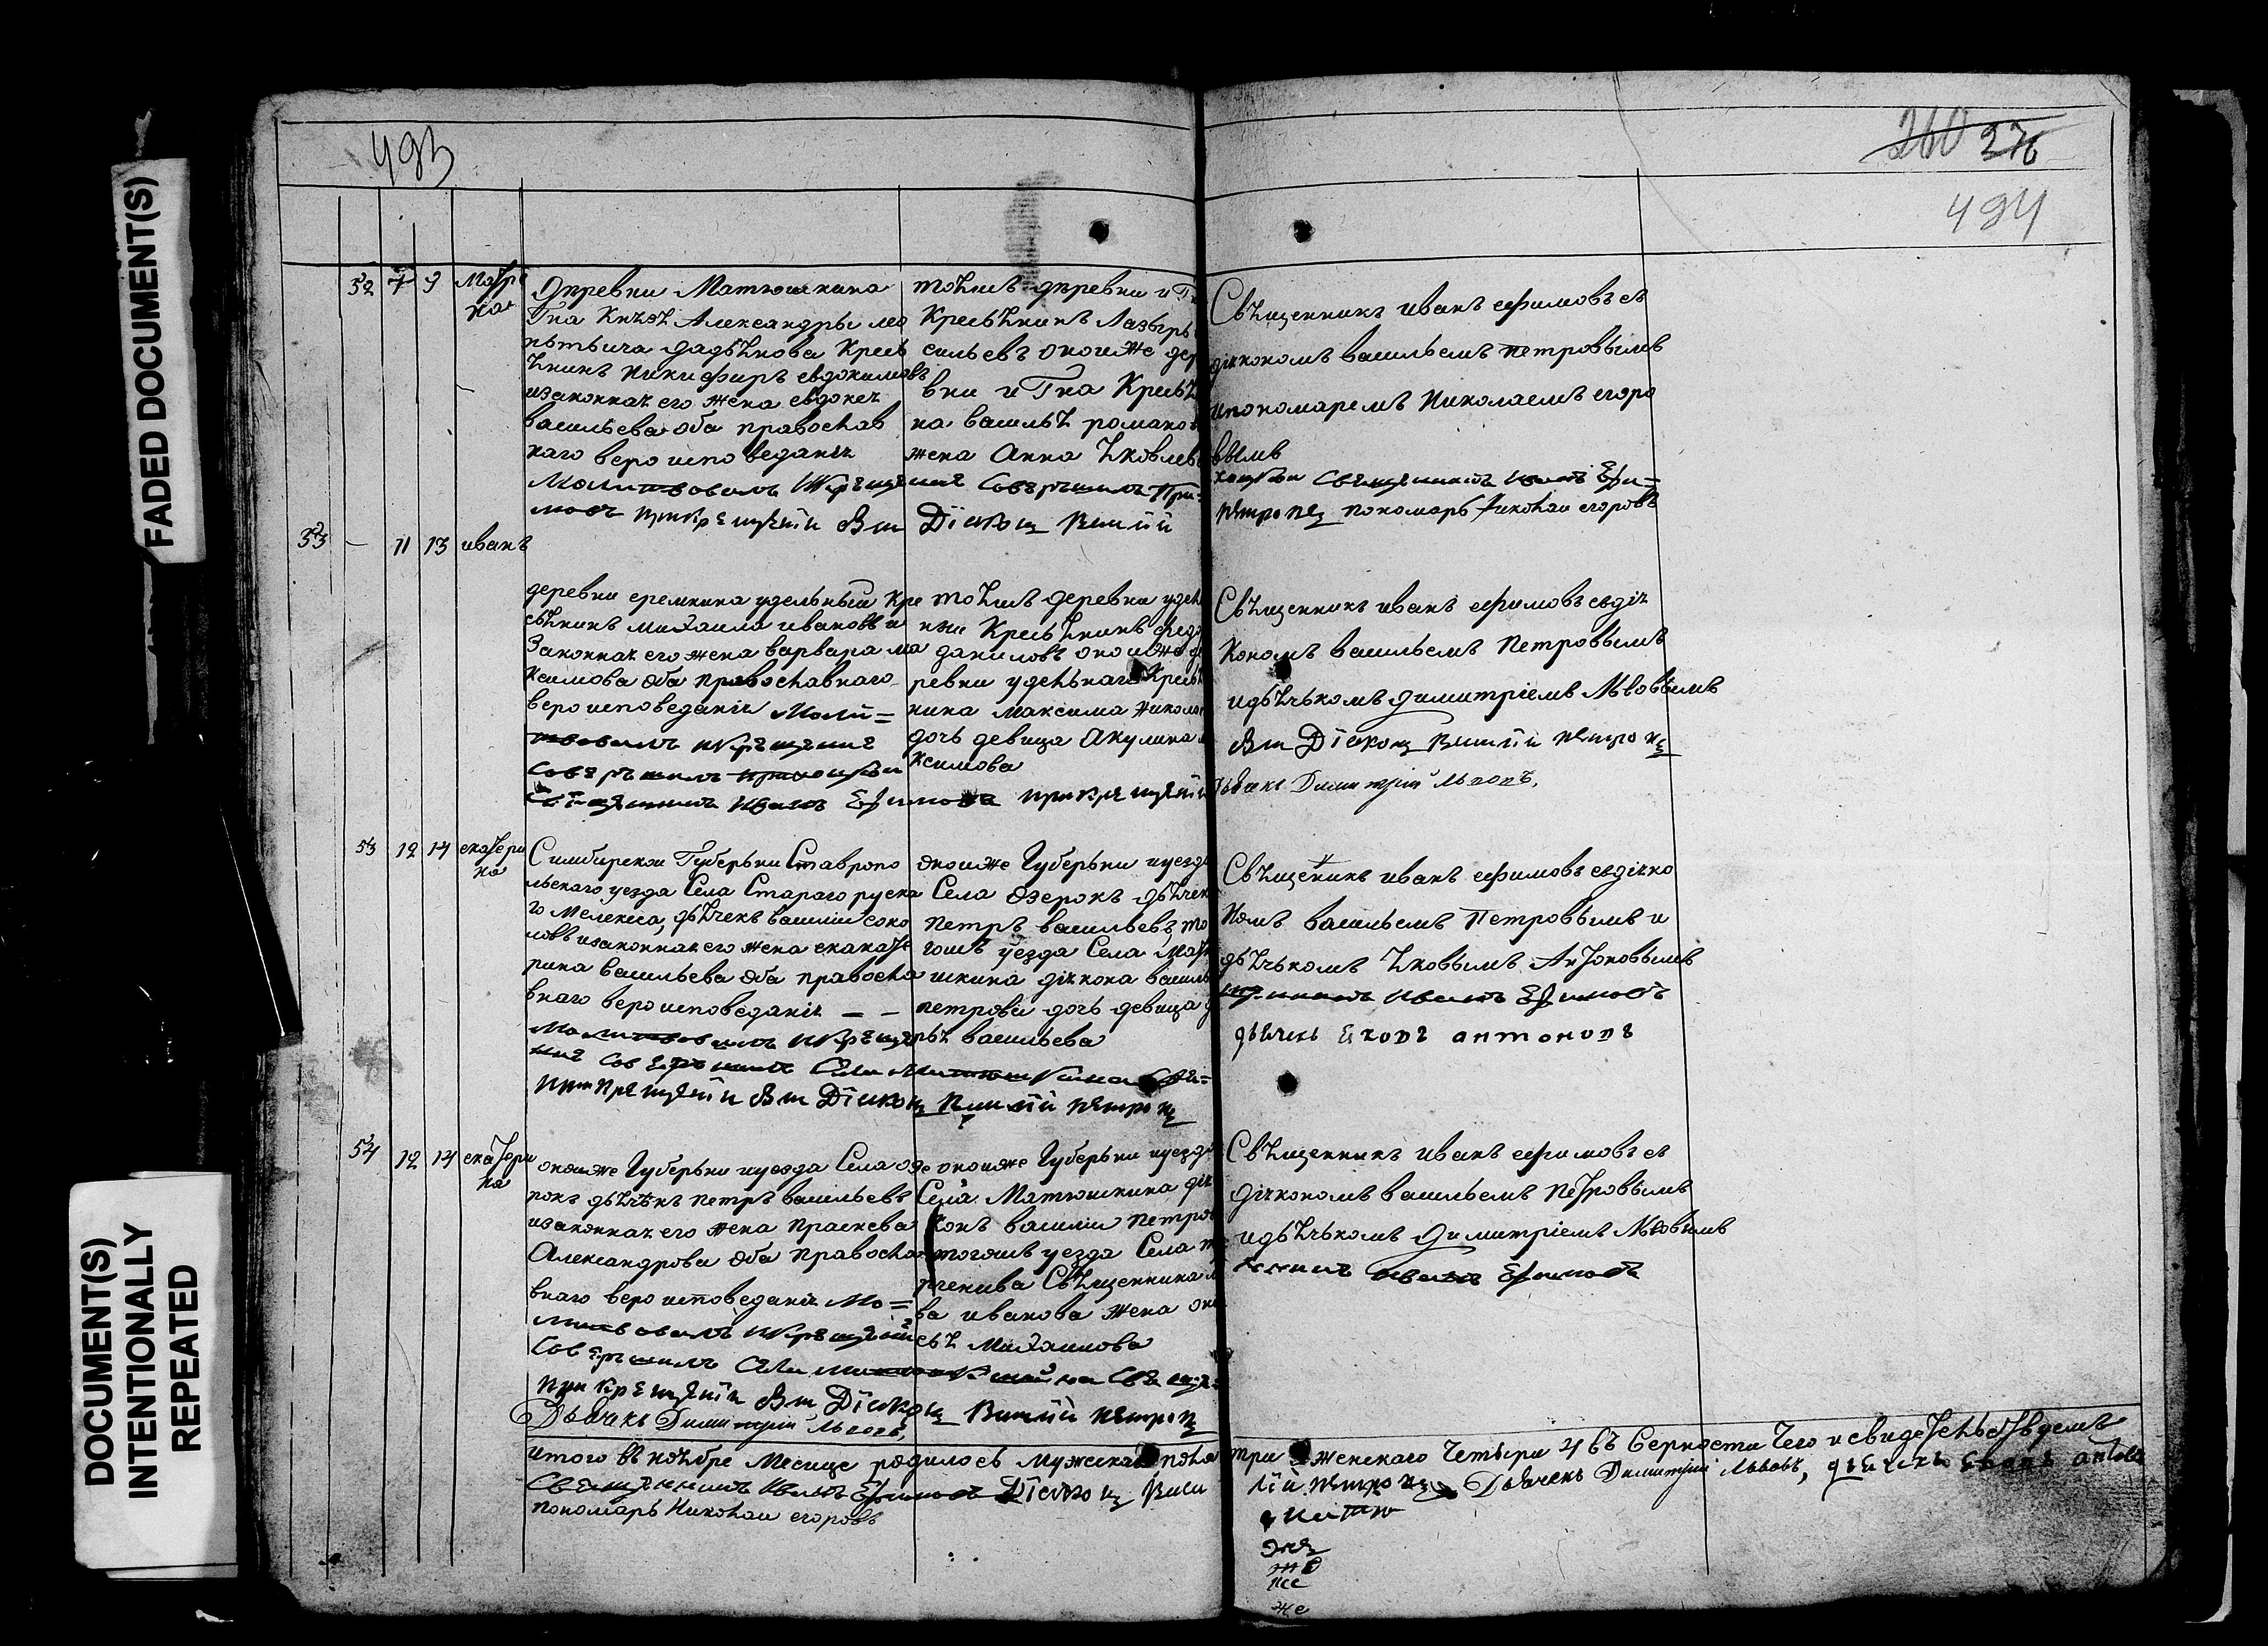 493
260 376
494
FADED DOCUMENT(S)
DOCUMENT(S)
INTENTIONALLY
REPEATED
52 7 9 Матре
на
деревни Матюшкина
Гна Князя Александры лео
нтьича дадьянова Кресь
янинъ Никифоръ евдокимовъ
изаконная его жена евдокея
васильева оба православ
наго вероисповедания
Молитвовалъ Икрещение Совершилъ При
тояжъ деревни и Г
Кресьянинъ Лазырь
сильевъ оноиже дер
вни и Гна Кресья
на василья романов
жена Анна яковлев
Свяценникъ иванъ ефимовъ съ
диякономъ васильемъ петровымъ
ипономаремъ Николаемъ егоро
вымъ
Свещенникъ Иванъ Ефи=
мовъ прикрещении Діаконъ Василій Петровъ пономарь Николаи егоровъ
33 11 13 иванъ
деревни еремкина удельныи кре
сьянинъ михаила ивановъ и
Законная его жена варвара ма
ксимова оба православнаго
вероисповедания Моли=
твовалъ икрещение
Совершилъ
Священникъ Иванъ Ефимовъ прикрещении
тояжъ деревни удел
ныи Кресьянинъ федо
даниловъ оноиже де
ревни удельнаго Кресья
нина максима Никола
дочь девица Акулина ма
ксимова
Свяценникъ иванъ ефимовъ съдия
кономъ васильемъ Петровымъ
идьячькомъ димитріемъ Львовымъ
Діаконъ Василій Петровъ
дьячекъ Димитрій Львовъ.
53 12 14 екатери
на
Симбирскои Губерьни Ставропо
льскаго уезда Села Стараго руска
го Мелекеса, дьячекъ василіи соко
ловъ изаконная его жена екате
рина васильева оба правосла
внаго вероисповедания — —
Молитвовалъ Икреще
ние Совершилъ Села Матюшкина Свя=
прикрещеніи Діаконъ Василій Петровъ
оноиже Губерьни иуезда
Села Озерокъ дьячек
петръ васильевъ то
гошъ уезда Села Матю
шкина диякона василь
петрова дочь девица
рья васильева
Свяценикъ иванъ ефимовъ съдияко
номъ васильемъ Петровымъ и
дьячькомъ яковымъ Антоновымъ
щенникъ Иванъ Ефимовъ
дьячекъ яковъ антоновъ
54 12 14 екатери
на
оноиже Губерьни иуезда Села озе
рокъ дьячекъ петръ васильевъ
изаконная его жена праскева
Александрова оба правосла
внаго вероисповедания Мо=
литвовалъ Икрещение
Совершилъ Села Матюшкина Свяще=
прикрещеніи Діаконъ Василій Петровъ
Дьячекъ Димитрій Львовъ,
оноиже Губерьни иуезда
Села Матюшкина дия
конъ василіи петров
тогошъ уезда Села
Свяценника
ва иванова жена
михаилова
Свяценникъ иванъ ефимовъ съ
диякономъ васильемъ Петровымъ
идьячькомъ димитріемъ Львовымъ
нникъ Иванъ Ефимовъ
итого въ ноябре месице родилось мужеска пола три женскаго четыри 4 въ верности чего и свидетельствуемъ
Священникъ Иванъ Ефимовъ Діаконъ Василій Петровъ Дьячекъ Димитрій Львовъ, дьячекъ яковъ антонов
пономарь Николаи егоровъ
же